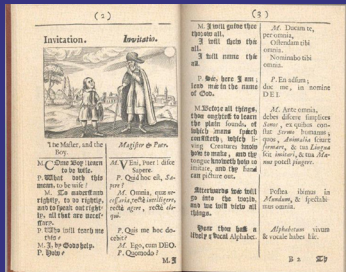 (2)
Invitation.
Invitatio.
The Master, and the
Boy.
M. Come Boy! learn
to be wise.
P. What doth this
mean, to be wise?
M. To understand
rightly, to do rightly,
and to speak out right-
ly, all that are necef-
sary.
P. Who will teach me
this?
M. I, by Gods help.
P. How?
Magister & Puer.
M. VEni, Puer! disce
Sapere.
P. Quid hoc est, Sa-
pere?
M. Omnia, quæ ne-
cessaria, rectè intelligere,
rectè agere, rectè elo-
qui.
P. Quis me hoc do-
cebit?
M. Ego, cum DEO.
P. Quomodo?
M. I
(3)
M. I will guide thee
thorow all.
I will shew thee
all.
I will name thee
all.
P. See, here I am;
lead me in the name
of God.
M. Before all things,
thou oughtest to learn
the plain sounds, of
which mans speech
consisteth; which li-
ving Creatures know
how to make, and thy
tongue knoweth how to
imitate, and thy hand
can picture out.
Afterwards we will
go into the world,
and we will view all
things.
Here thou hast a
lively & Vocal Alphabet.
M. Ducam te,
per omnia,
Ostendam tibi
omnia,
Nominabo tibi
omnia.
P. En adsum;
duc me, in nomine
DEI.
M. Ante omnia,
debes discere simplices
Sonos, ex quibus con-
stat Sermo humanus;
quos, Animalia sciunt
formare, & tua Lingua
scit imitari, & tua Ma-
nus potest pingere.
Postea ibimus in
Mundum, & spectabi-
mus omnia.
Alphabetum vivum
& vocale habes hic.
B 2